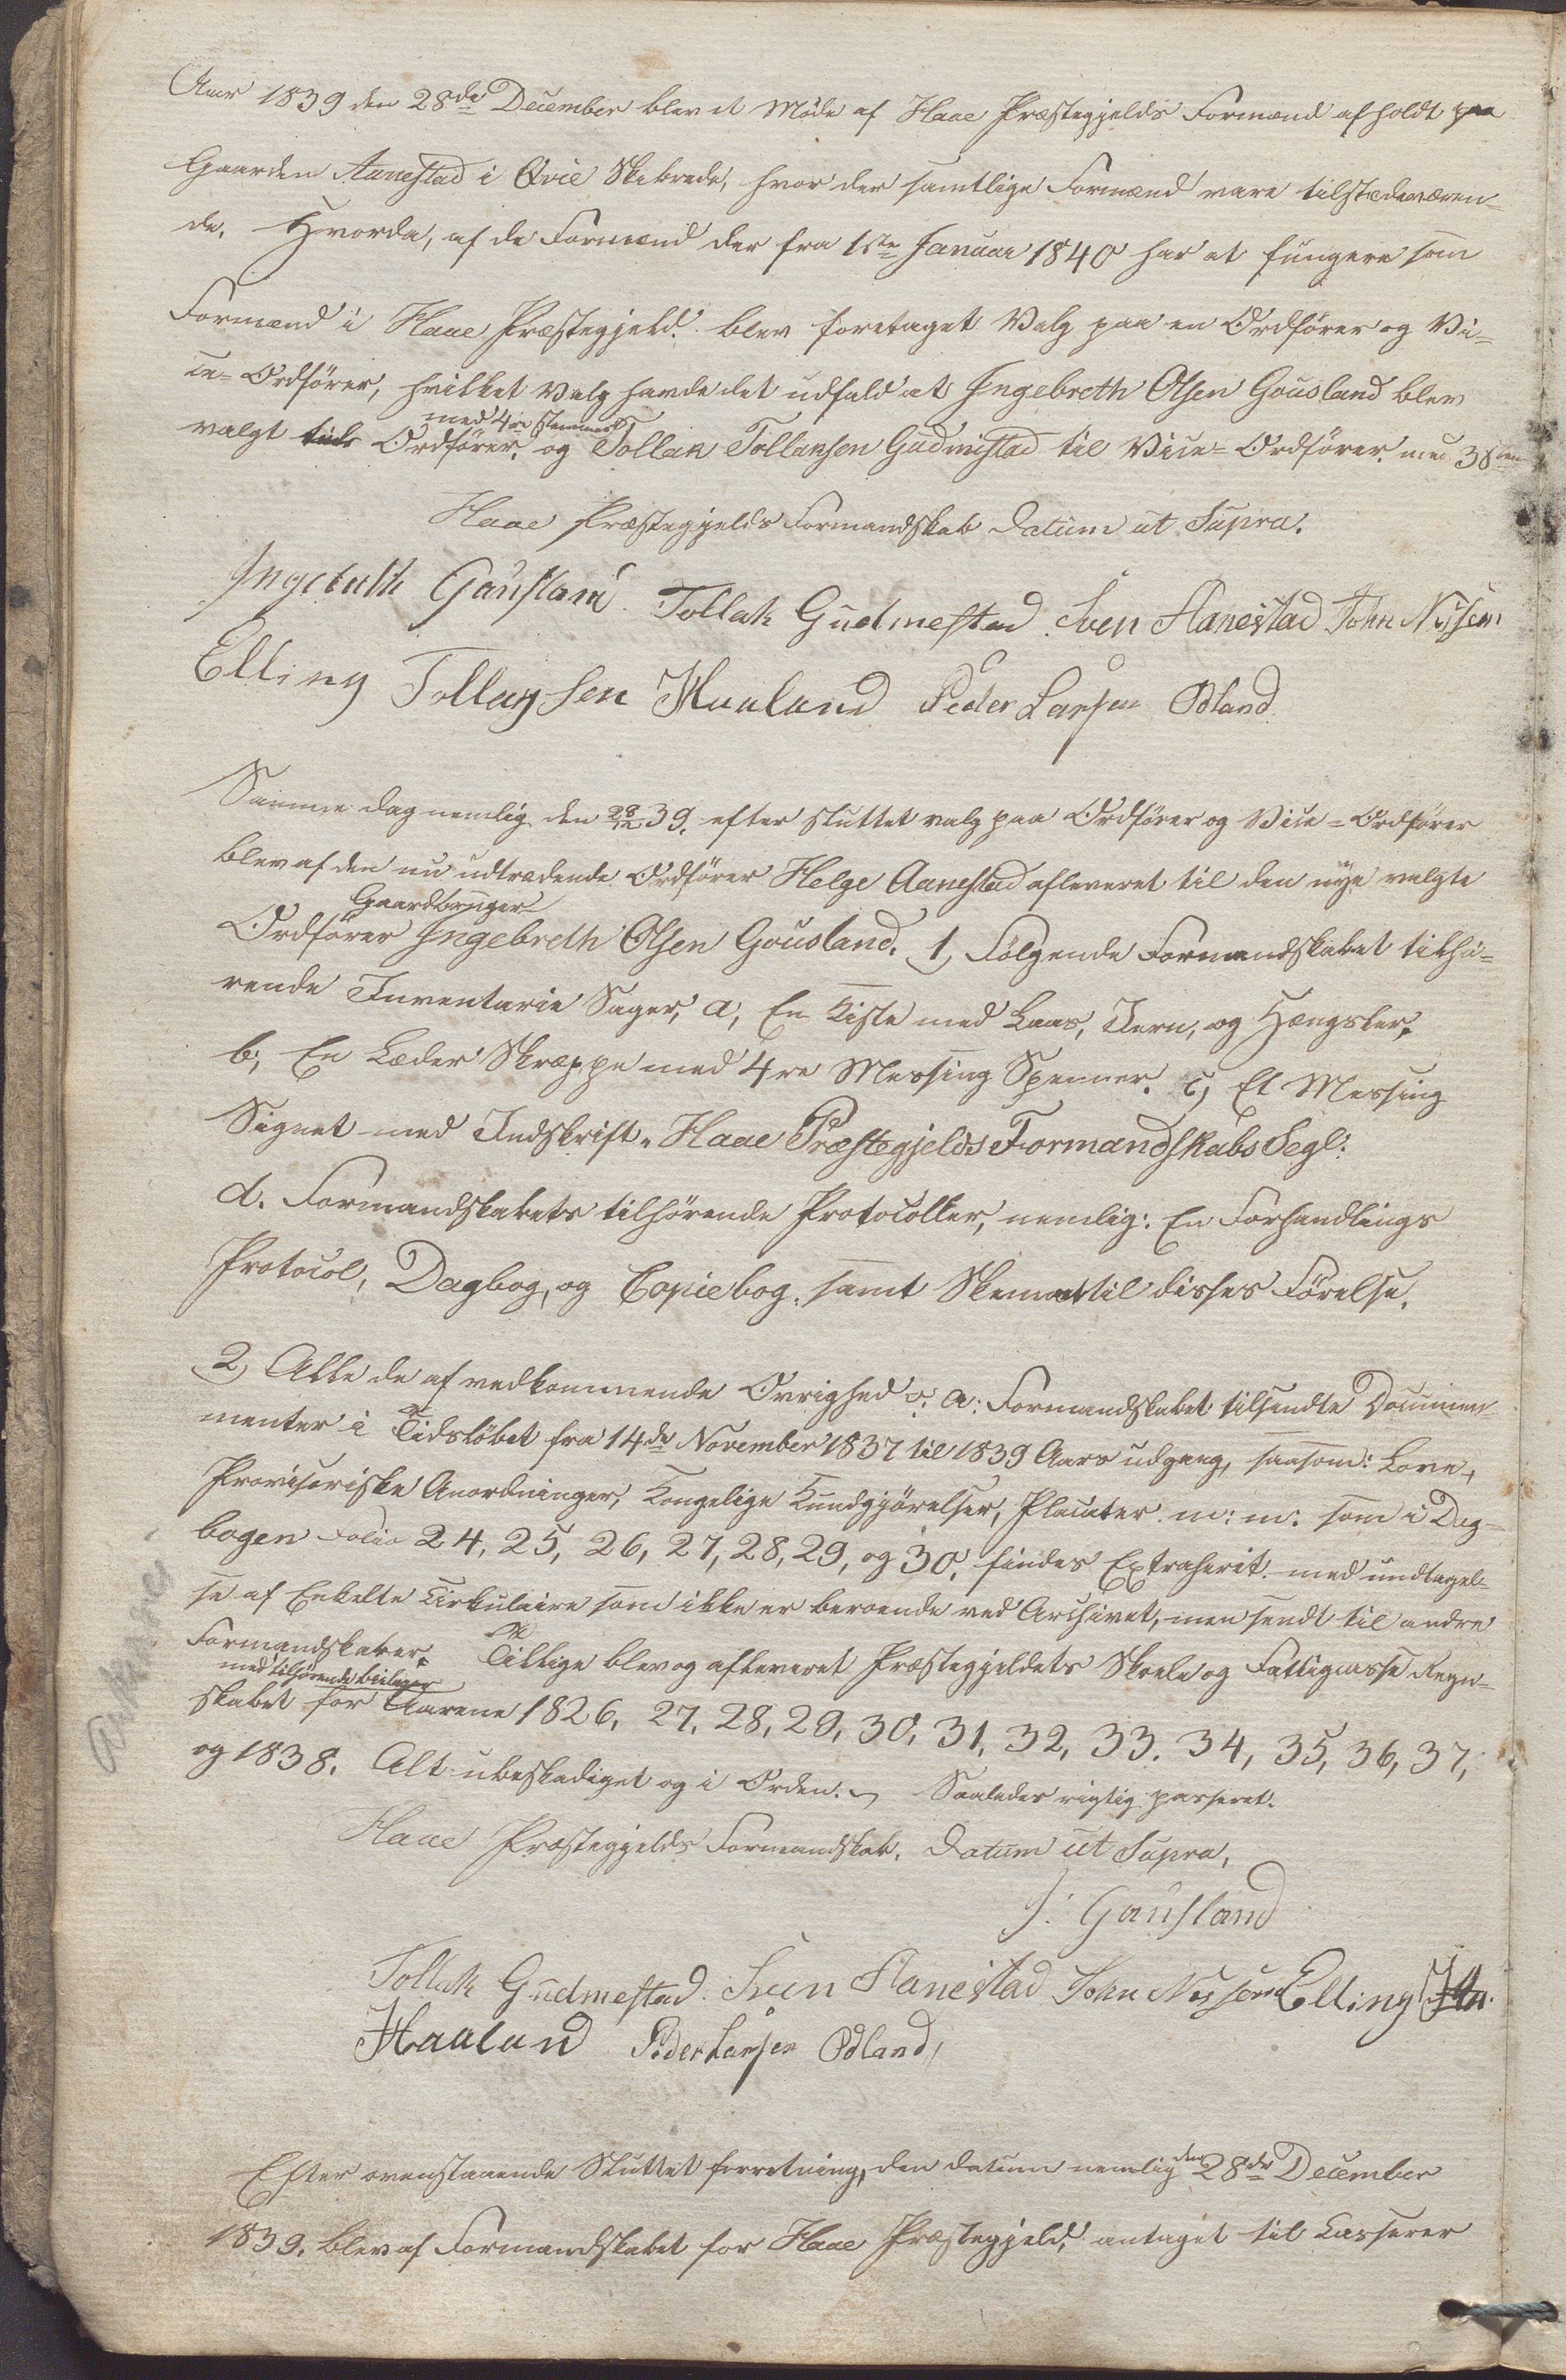 Aar 1839 den 28de December blev et Møde af Haae Præstegjelds Formænd afholdt paa
Gaarden Aanestad i Qvie Skibrede, hvor der samtlige Formænd vare tilstedeværen-
de. Hvorda, af de Formænd der fra 1ste Januar 1840 har at fungere som
Formænd i Haae Præstegjeld. blev foretaget Valg paa en Ordfører og Vi-
ce-Ordfører, hvilket Valg havde det udfald at Ingebreth Olsen Gousland blev
med 4re stemmer
valgt til Ordfører. og Tollak Tollaksen Gudmestad til Vice-Ordfører. med 3
Haae Præstegjelds Formandskab Datum ut Supra.
Ingebreth Gausland Tollak Gudmestad Sven Aanestad John Nilsen
Elling Tollagsen Haaland Peder Larsen Odland
Samme dag nemlig den 28/12 39. efter sluttet valg paa Ordfører og Vice-Ordfører
blev af den nu udtrædende Ordfører Helge Aanestad afleveret til den nye valgte
Gaardbruger
Ordfører Ingebreth Olsen Gousland. 1, Følgende Formandskabet tilhø-
rende Inventarie Sager, a, En Kiste med Laas, Jern, og Hængsler.
b, En Læder Skræppe med 4re Messing Spenner. c, Et Messing
Signet med Indskrift „Haae Præstegjelds Formandskabs Segl:
d. Formandskabets tilhørende Protocoller, nemlig: En Forhandlings
Protocol, Dagbog, og Copiebog. samt Skema til disses Førelse.
2, Alle de af vedkommende Øvrighed o: a: Formandskabet tilsendte Docum-
menter i Tidsløbet fra 14de November 1837 til 1839 Aars udgang, saasom: Love,
Provisoriske Anordninger, Kongelige Kundgjørelser, Placater m: m: som i Dag-
bogen Folio 24, 25, 26, 27, 28, 29, og 30. findes Extraherit. med undtagel-
se af Enkelte Cirkulaire som ikke er beroende ved Archivet, men sendt til andre
Formandskaber. Tillige blev og afleveret Præstegjeldets Skole og Fattigcasse Regn-
med tilhørende bielager
skabet for Aarene 1826, 27, 28, 29, 30, 31, 32, 33. 34, 35, 36, 37,
og 1838. Alt ubeskadiget og i Orden. Saaledes rigtig passeret.
Haae Præstegjelds Formandskab. Datum ut Supra,
I: Gausland
Tollak Gudmestad. Sven Aanestad John Nilsen Elling
Haaland Peder Larsen Odland,
Efter ovenstaaende Sluttet forretning, den datum nemlig den 28de December
1839. blev af Formandskabet for Haae Præstegjeld, antaget til Casserer